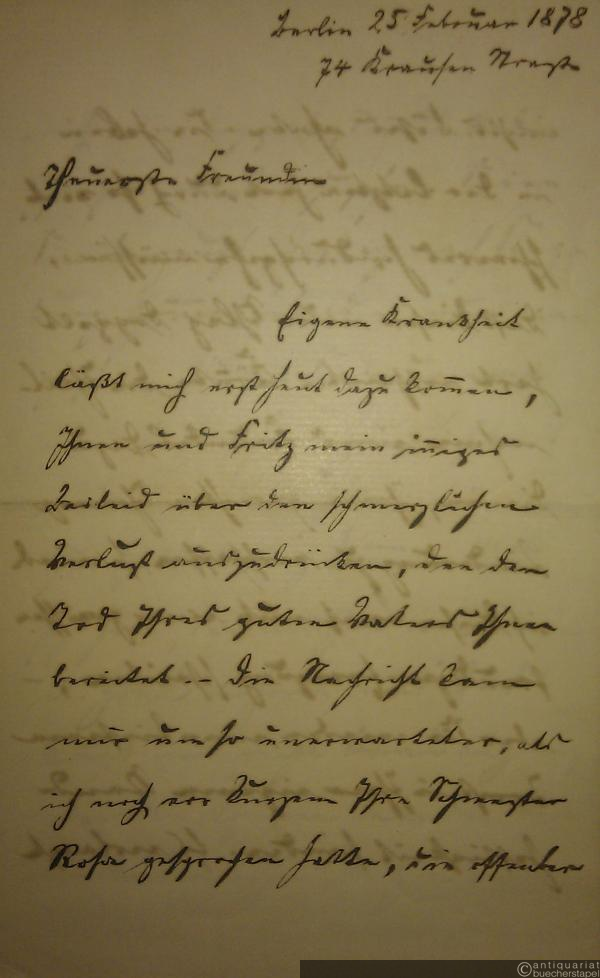 Berlin 25 Februar 1878
74 Krausen Straße
Theuerste Freundin
Eigene Krankheit
läßt mich erst heut dazu kom̅en,
Ihnen und Fritz mein in̅iges
Beileid über den schmerzlichen
Verlust auszudrücken, den der
Tod Ihres guten Vaters Ihnen
bereitet. – Die Nachricht kam
mir um so unerwarteter, als
ich noch vor Kurzem Ihre Schwester
Rosa gesprochen hatte, die offenbar
© antiquariat
buecherstapel